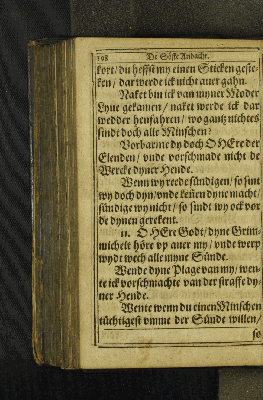 198 De Söste Andacht.
kort / du heffst my einen Sticken geste-
ken / dar werde ick nicht auer gahn.
Naket bin ick van myner Moder
Lyue gekamen / naket werde ick dar
wedder henfahren / wo gantz nichtes
sindt doch alle Minschen?
Vorbarme dy doch O HEre der
Elenden / vnde vorschmade nicht de
Wercke dyner Hende.
Wenn wy rede sündigen / so sint
wy doch dyn / vnde kenen dyne macht /
sündige wy nicht / so sindt wy ock vor
de dynen gerekent.
11. O HEre Godt / dyne Grim-
micheit höre vp auer my / vnde werp
wydt wech alle myne Sünde.
Wende dyne Plage van my / wen-
te ick vorschmachte van der straffe dy-
ner Hende.
Wente wenn du einen Minschen
tüchtigest vmme der Sünde willen /
so